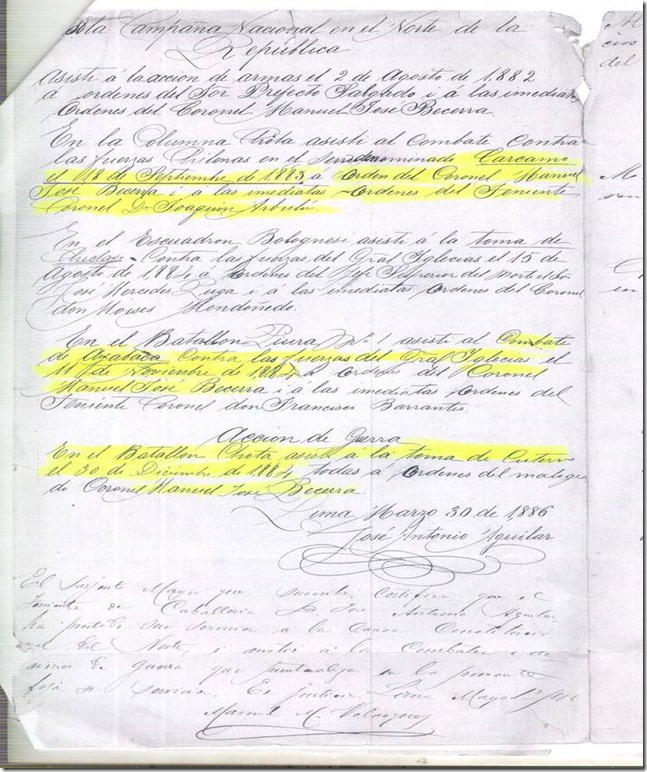 sola Campaña Nacional en el Norte de la
República
Asisti á la accion de armas el 2 de Agosto de 1882
a ordenes del Sor Prefecto Salgado i á las imediatas
Ordenes del Coronel Manuel José Becerra
En la Columna Chota asisti al Combate Contra
las fuerzas Chilenas en el denominado Carcamo
el 18 de Septiembre de 1883 á Orden del Coronel Manuel
José Becerra i á las imediatas Ordenes del Teniente
Coronel Dn Joaquin Arbulú.
En el Escuadron Bolognesi asisti á la toma de
Chiclayo Contra las fuerzas del Gral Iglesias el 15 de
Agosto de 1884 á Ordenes del Jefe Superior del Norte el Sor
José Mercedes Puga i á las imediatas Ordenes del Coronel
don Moises Mondoñedo.
En el Batallon Piura Nº 1 asisti al Combate
de Ayabaca Contra las fuerzas del Gral Iglesias el
11 de Noviembre de 1884 a Ordenes del Coronel
Manuel José Becerra i á las imediatas Ordenes del
Teniente Coronel don Francisco Barrantes.
Accion de Gerra
En el Batallon Chota asisti á la toma de Cutervo
el 30 de Diciembre de 1884 todas á Ordenes del malogra
do Coronel Manuel José Becerra.
Lima Marzo 30 de 1886
José Antonio Aguilar
El Sarjento Mayor que suscribe, Certifica: que el
Teniente de Caballeria D. José Antonio Aguilar,
ha prestado sus servicios á la Causa Constitucio
nal del Norte, i asistió á los Combates i ac
ciones de guerra que puntualiza en la presente
foja de servicios. Es justicia. Lima Mayo
Manuel M. Velasquez